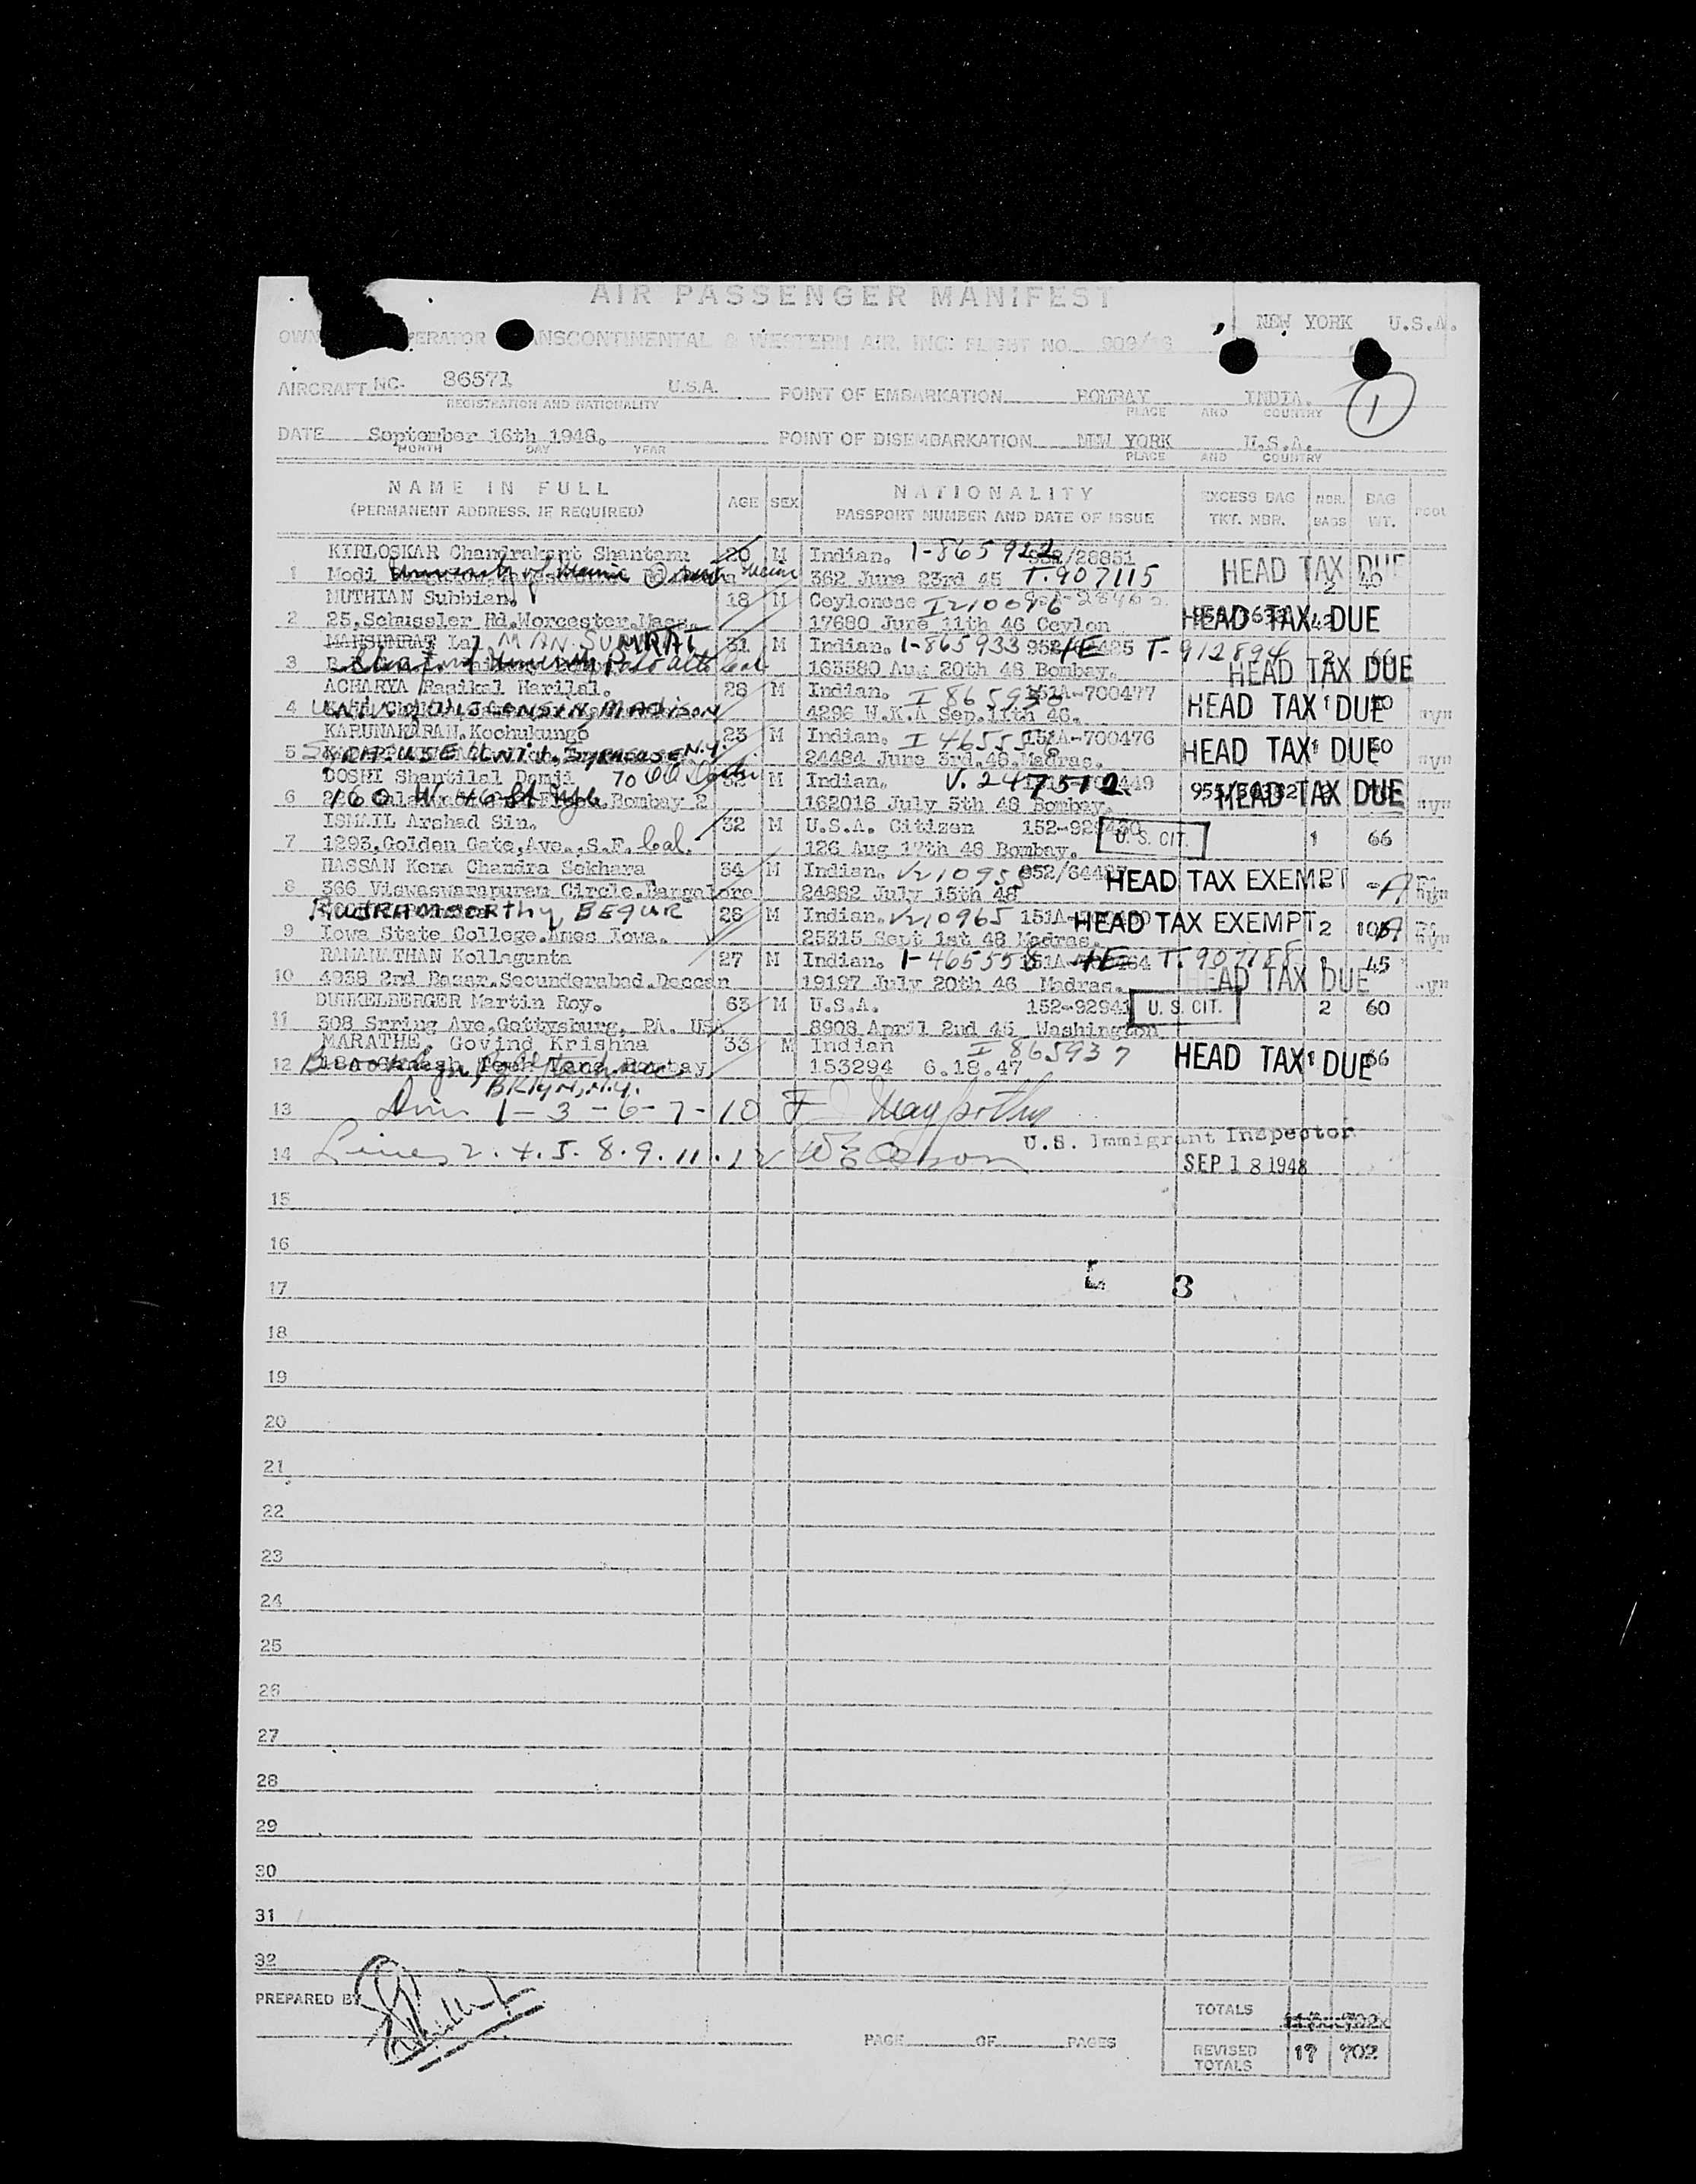 AIR PASSENGER MANIFEST
NEW YORK U.S.A.
OWN ERATOR ANSCONTINENTAL & WESTERN AIR, INC. FLIGHT NO. 909/
AIRCRAFT NC. 86571 U.S.A. POINT OF EMBARKATION BOMBAY INDIA. 1
REGISTRATION AND NATIONALITY PLACE AND COUNTRY
DATE September 16th 1948. POINT OF DISEMBARKATION NEW YORK U.S.A.
MONTH DAY YEAR PLACE AND COUNTRY
NAME IN FULL AGE SEX NATIONALITY EXCESS BAG NBR. BAG
(PERMANENT ADDRESS, IF REQUIRED) PASSPORT NUMBER AND DATE OF ISSUE TKT. NBR. BAGS WT.
KIRLOSKAR Chandrakant Shantanu 20 M Indian. 1-865922 /28851
1 Modi University of 362 June 23rd 45 T.907115 HEAD TAX DUE 2 40
MUTHIAN Subbian. 18 M Ceylonese I210076
2 25, Schussler Rd. Worcester. Mass. 17680 June 11th 46 Ceylon HEAD TAX DUE
MANSUMRAT Lal MAN SUMRAT 31 M Indian. 1-865933 T-912894
3 University Palo alto Cal 163580 Aug 20th 48 Bombay. HEAD TAX DUE
ACHARYA Rasikal Harilal. 28 M Indian. I 865936 151A-700477
4 UNIV. of WISCONSIN, MADISON 4296 W.K.A Sep. 11th 46. HEAD TAX DUE "y"
KARUNAKARAN. Kochukungo 23 M Indian. I 46555 151A-700476
5 SYRACUSE UNIV. SYRACUSE N.Y. 24484 June 3rd. 48. Madras. HEAD TAX DUE "y"
DOSHI Shantilal Damji 32 M Indian. V. 247512
6 160 W. 46 St Bombay 2 162016 July 5th 48 Bombay. HEAD TAX DUE "y"
ISMAIL Arshad Sin. 32 M U.S.A. Citizen 152-929
7 1293, Golden Gate, Ave., S.F. Cal. 126 Aug 17th 48 Bombay. U. S. CIT. 1 66
HASSAN Kema Chandra Sekhara 54 M Indian. 952/644
8 366 Viswaswarapuram Circle. Bangalore 24882 July 15th 48 HEAD TAX EXEMPT
RUDRAMOORTHY, BEGUR 26 M Indian. V210965 151A-
9 Iowa State College. Ames Iowa. 25315 Sept 1st 48 Madras. HEAD TAX EXEMPT 2
RAMANATHAN Kollagunta 27 M Indian. 1-465558 T. 907188 1 45
10 4938 2rd Bazar. Secunderabad. Deccan 19197 July 20th 46 Madras. HEAD TAX DUE "y"
DUNKELBERGER Martin Roy. 63 M U.S.A. 152-92941 U. S. CIT. 2 60
11 308 Srring Ave. Gettysburg, PA. USA 8908 April 2nd 45 Washington
MARATHE, Govind Krishna 33 M Indian I 865937
12 Bombay 153294 6.18.47 HEAD TAX DUE 66
BKlyn, N.Y.
13 1-3-6-7-10
U.S. Immigrant Inspector
14 Lines 2. 4. 5. 8. 9. 11. 12
SEP 18 1948
15
16
17 3
18
19
20
21
22
23
24
25
26
27
28
29
30
31
32
PREPARED BY
TOTALS
PAGE OF PAGES
REVISED TOTALS 17 702